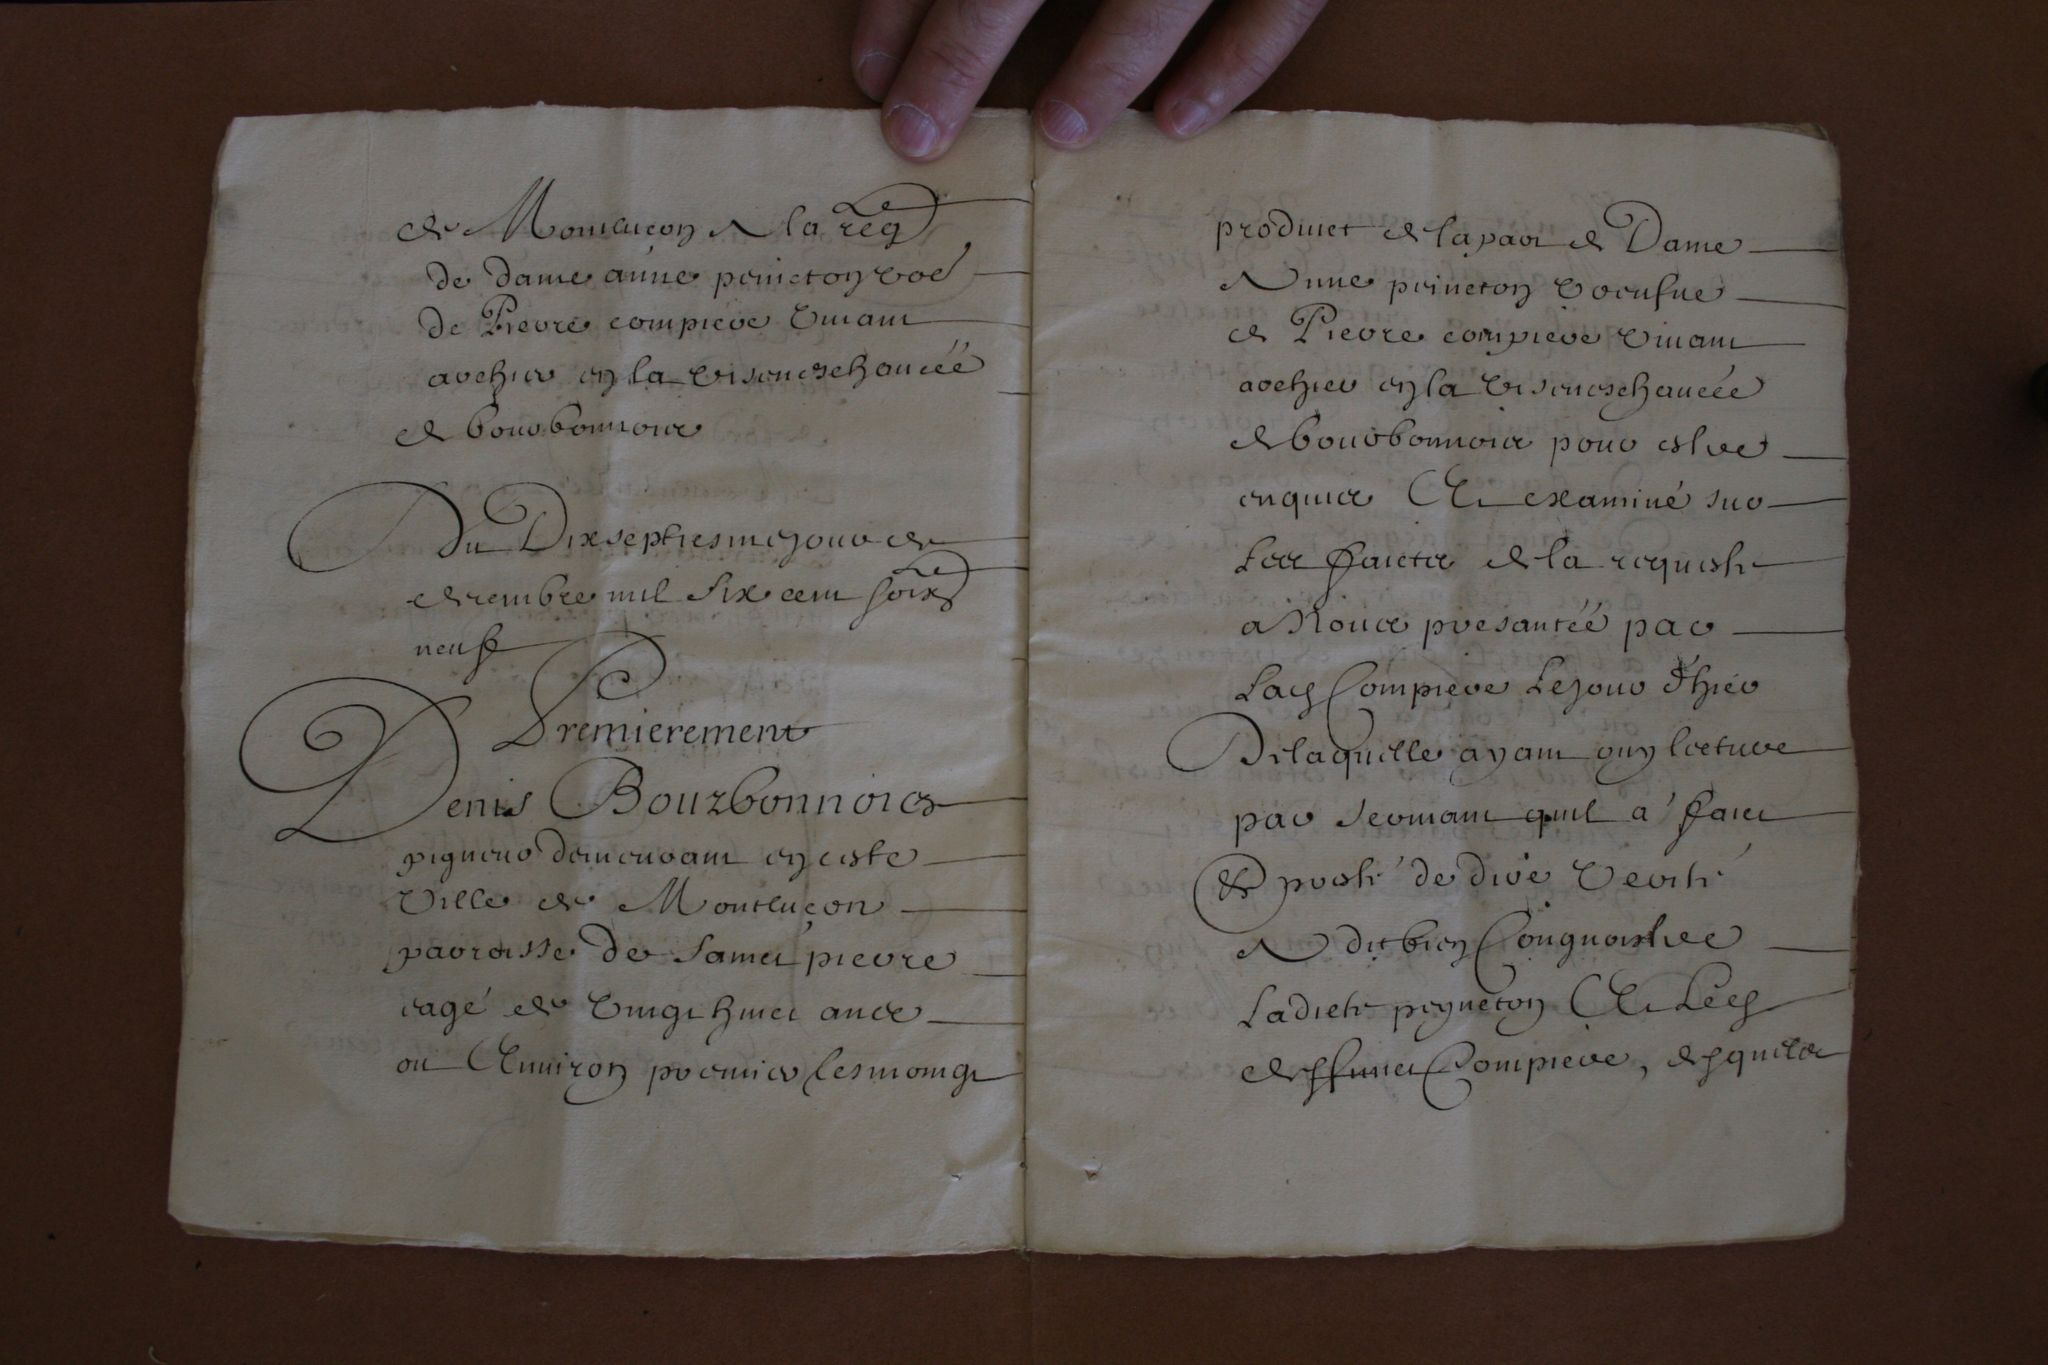 de Monlucon A la req<sup>te</sup>
de dame anne princton vve
de Pierre compiere vivant
archier en la viseneschaucéé
de bourbonnois
Du Dixseptiesme jour de
decembre mil six cent soix<sup>te</sup>
neuf
Premierement
Denis Bourbonnois
pigneur demeurant en ceste
Ville de Montlucon
parroisse de sainct pierre
eagé de vingt huict ans
ou Environ premier tesmoing
produict de la part de Dame
Anne princton veufve
de Pierre compiere vivant
archier en la viseneschaucéé
de bourbonnois pour estre
enquis Et examiné sur
Les faicts de la requeste
a Nous presantéé par
Lad Compiere Le jour d'hier
De laquelle ayant ouy lecture
par sermant quil a faict
& presté de dire verité
A dit bien Congnoistre
Ladicte pryneton Et Led
deffunct Compiere, & quils